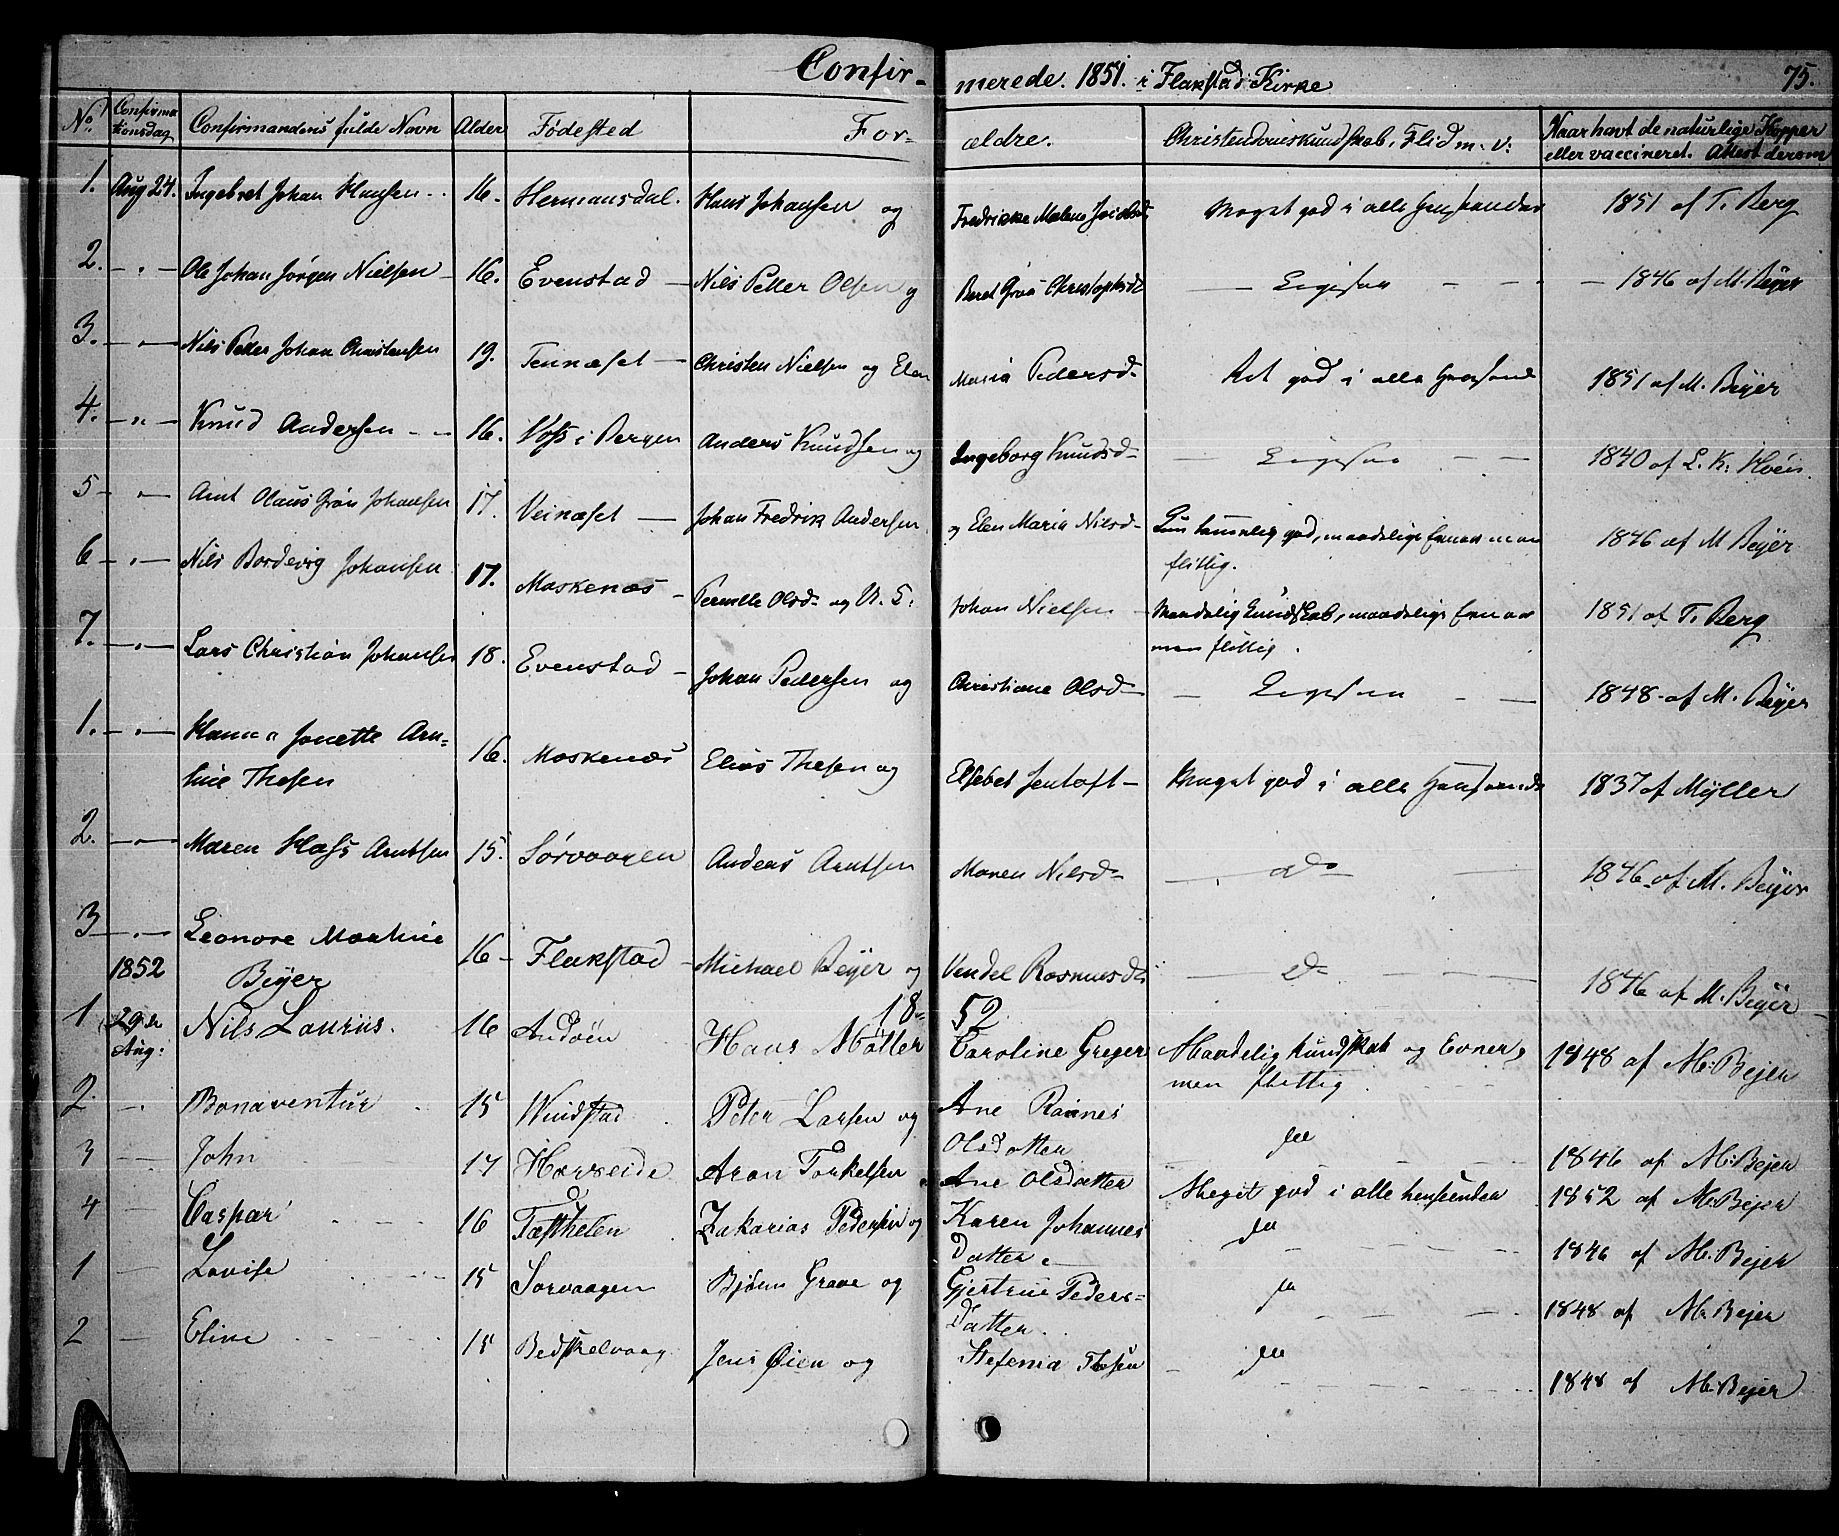 Confir- merede. 1851. i Flakstad Kirke 75.
No. Confirmationsdag Confirmandens fulde Navn Alder Fødested For- ældre. Christendomskundskab, Flid m. v. Naar havt de naturlige Kopper
eller vaccineret. Attest derom
1. Aug 24. Ingebret Johan Hansen 16. Hermansdal. Hans Johansen og Fredrikke Malene Meget god i alle Henseender 1851 af T. Berg
2. — " — Ole Johan Jørgen Nielsen 16. Evenstad — Nils Petter Olsen og Beret Ligesaa — 1846 af M. Beyer
3. — " — Nils Petter Johan Christensen 19. Tennæset — Christen Nielsen og Elen Maria Pedersd. Ret god i alle Henseende 1851 af M. Beyer
4. — " — Knud Andersen 16. Voss i Bergen Anders Knudsen og Ingeborg Knudsd. — Ligesaa — 1840 af L. K.
5 — " — Arnt Olaus Grøn Johansen 17. Veinæset — Johan Fredrik Andersen og Elen Maria Nilsd. temmelig god, maadelige Evner men 1846 af M Beyer
flittig.
6 — " — Nils Bordevig Johansen 17. Moskenæs — Pernille Olsd. og U. S. Johan Nielsen Maadelig Kundskab, maadelige Evner 1851 af T. Berg
men flittig.
7. — " — Lars Christian Johansen 18. Evenstad — Johan Pedersen og Christiane Olsd. — Ligesaa — 1848 af M. Beyer
1. — " — Hanna Jonette Arn-
tine Thesen 16. Moskenæs Elias Thesen og Elsebet Jentoft — Meget god i alle Henseende 1837 af Mÿller
2. — " — Maren Hass Arntsen 15. Sørvaagen Anders Arntsen Maren Nilsd. — do — 1846 af M. Beyer
3 — " — Leonore Martine
1852 Beyer 16 — Flakstad — Michael Beyer og Vendel Rasmusd. — do — 1846 af M. Beyer
18- 52
1 29de Aug: Nils Laurits. 16 Andøen Hans Møller Caroline Greger Maadelig Kundskab og Evner, 1848 af M. Bejer
men flittig.
2. — Bonaventur 15 Vindstad Peter Larsen og Ane
Olsdatter do 1846 af M. Bejer
3 — John 17 Hærseide Aron Torkelsen Ane Olsdatter Meget god i alle henseender 1852 af M. Bejer
4 — Caspar 16 Zakarias Pedersen og Karen Johannes
Datter do 1846 af M. Bejer
1 — Lovise 15 Sørvaagen Bjørn Grave og Gjertrue Peders-
Datter. do 1848 af M. Bejer
2 — Eline 15 Bedskelvaag Jens Øien og Stefenia Thesen — do 1848 af M. Bejer